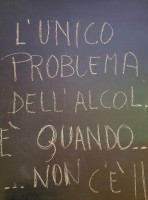 L'UNICO
PROBLEMA
DELL'ALCOL.
È QUANDO..
... NON C'È!!